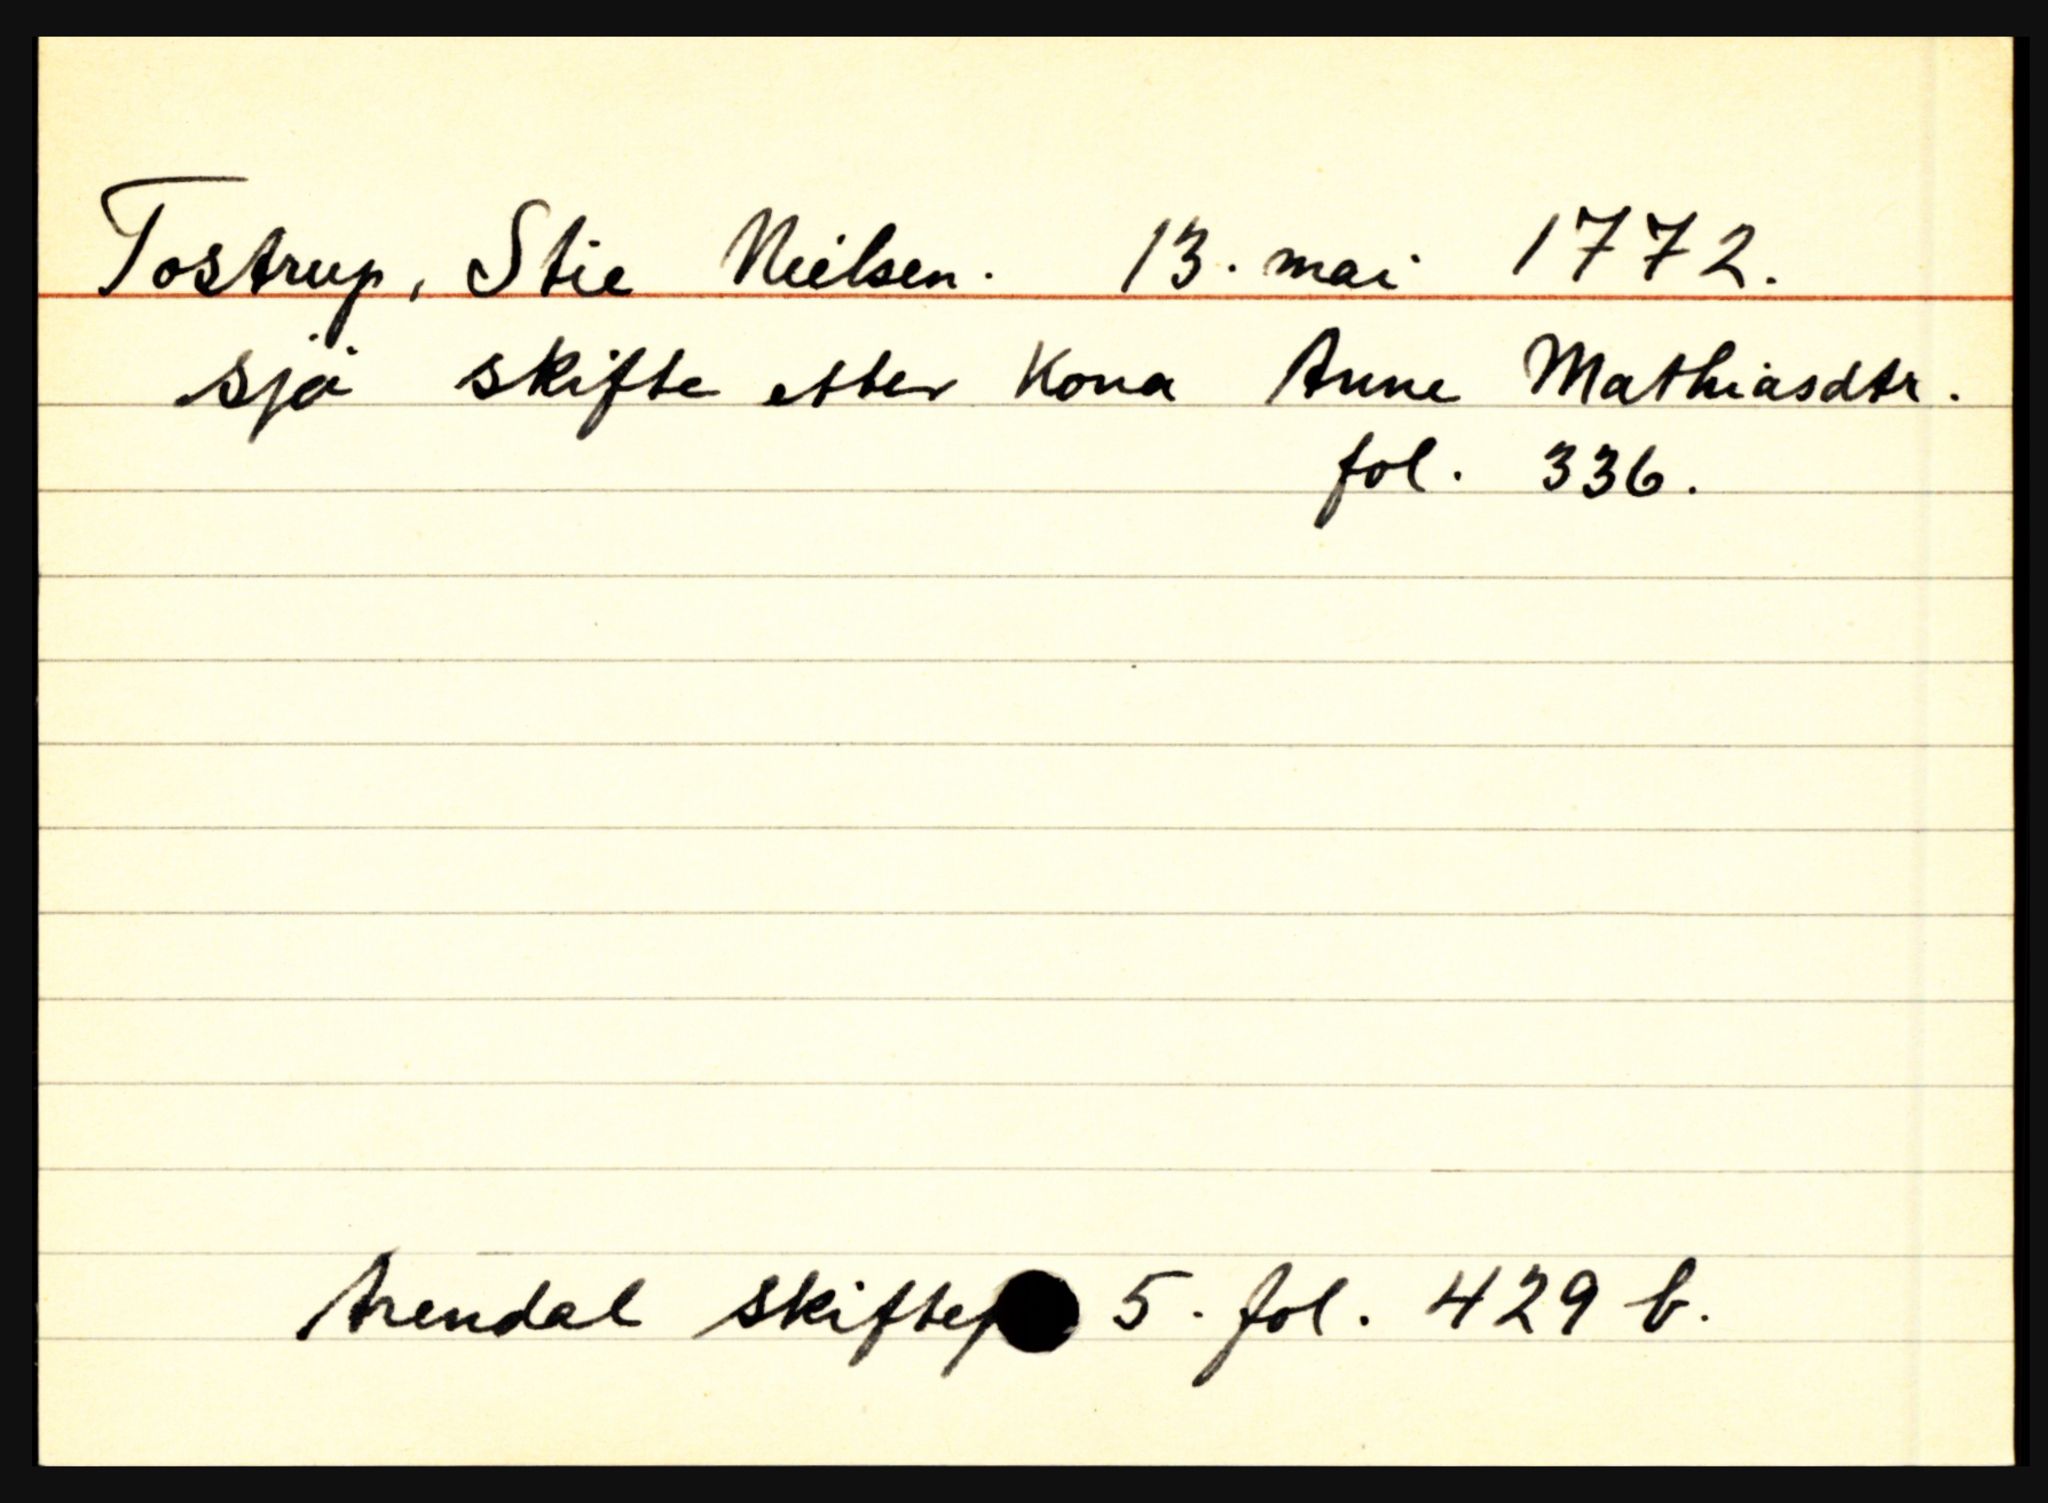 Tostrup, Stie Nielsen. 13. mai 1772.
sjå skifte etter kona Anne Mathiasdtr.
fol. 336.
Arendal skiftep 5. fol. 429 b.